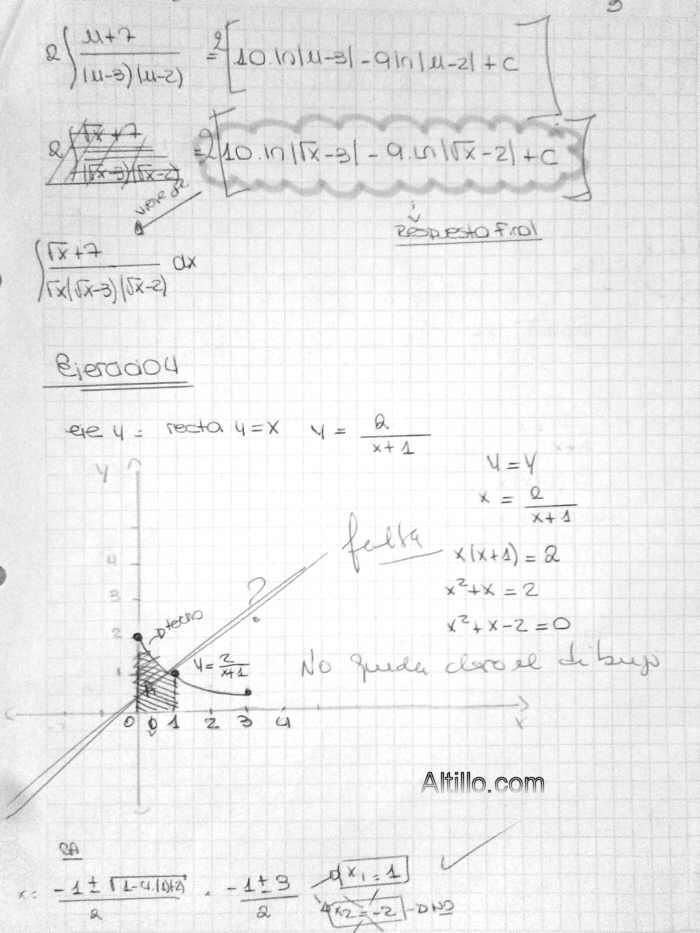 2∫ u+7 / (u-3)(u-2) = 2[10.ln|u-3| - 9ln|u-2| + C]
2∫ √x+7 / (√x-3)(√x-2) = 2[10.ln|√x-3| - 9.ln|√x-2| + C]
Respuesta final
∫ √x+7 / √x(√x-3)(√x-2) dx
Ejercicio 4
eje y = recta y=x y = 2 / x+1
y = y
x = 2 / x+1
x(x+1) = 2
x²+x = 2
x²+x-2=0
y
falta
4
3
?
2
techo
1
y = 2 / x+1
No queda claro el dibujo
0 0 1 2 3 4
x
Altillo.com
x: -1 ± √1-4.(1)(-2) / 2 = -1±3 / 2
x₁=1
x₂=-2 NO